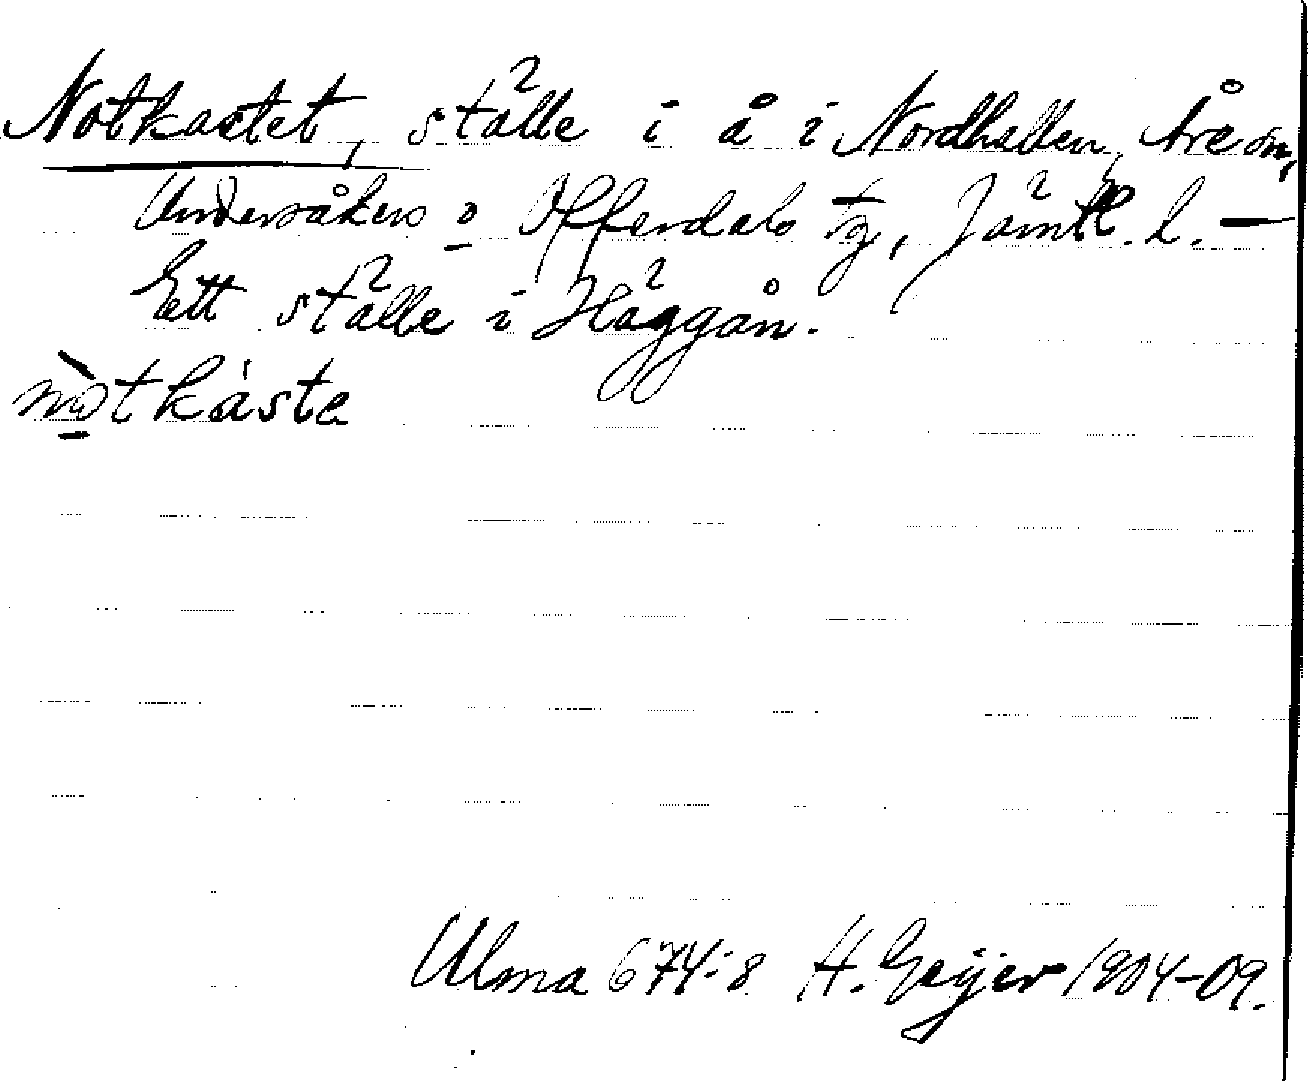 Notkastet, ställe i å i Nordhallen, Åre sn,
Undersåkers o Offerdals tg, Jämtl. l. —
Ett ställe i Häggån.
nòtkáste
Ulma 674:8 H. Geijer 1904-09.